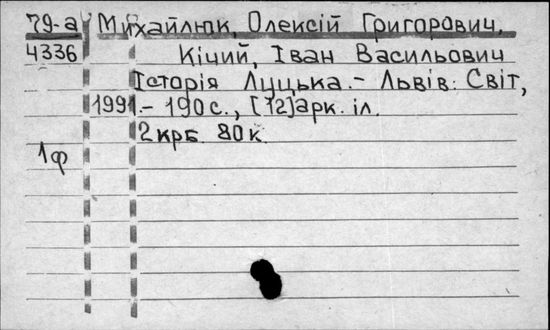 79-а Михайлюк, Олексій Григорович,
4336 Кіций, Іван Васильович
Історія Луцька. - Львів: Світ,
1991. - 190 с., [12] арк. іл.
2 крб. 80 к.
1ф